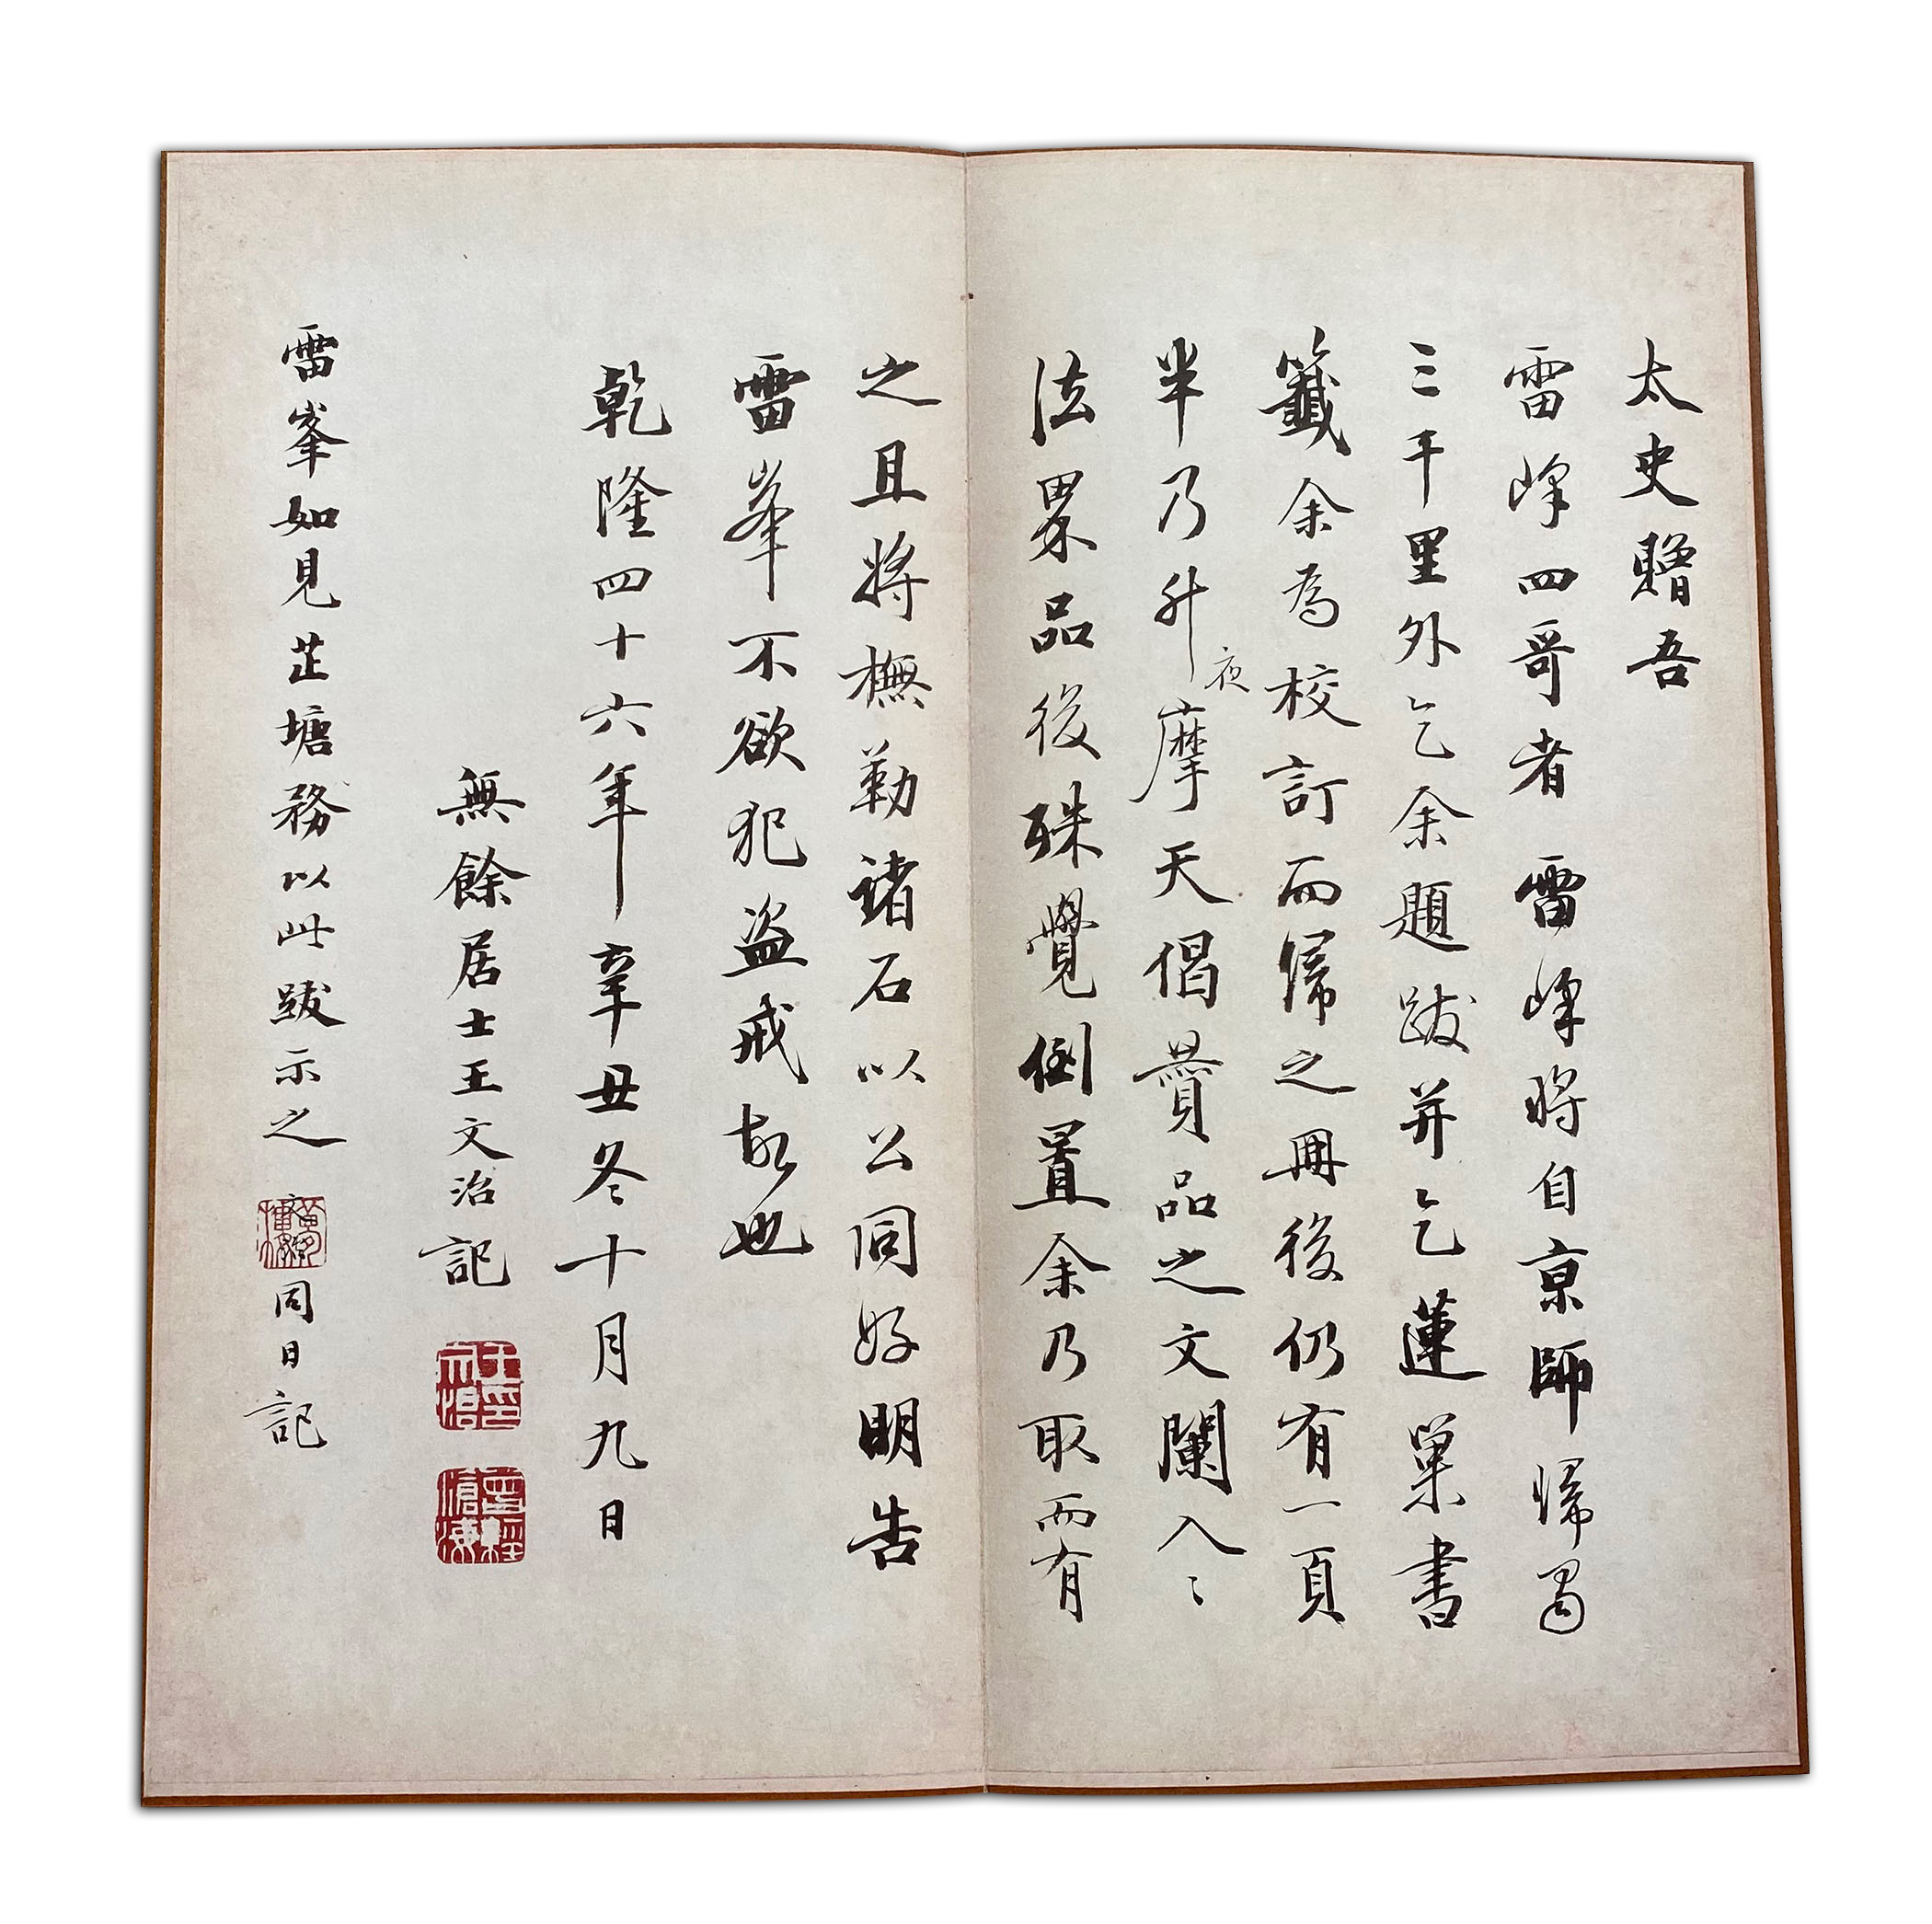 太史贈吾
雷峰四哥者雷峰將自京師歸蜀
三千里外乞余題跋并乞蓮巢書
籤余為校訂而歸之冊後仍有一頁
半乃升夜摩天偈贊品之文闌入〻
法界品後殊覺倒置余乃取而有
之且將橅勒諸石以公同好明告
雷峯不欲犯盜戒故也
乾隆四十六年辛丑冬十月九日
無餘居士王文治記
王文治印
曾經滄海
雷峯如見芷塘務以此跋示之
同日記